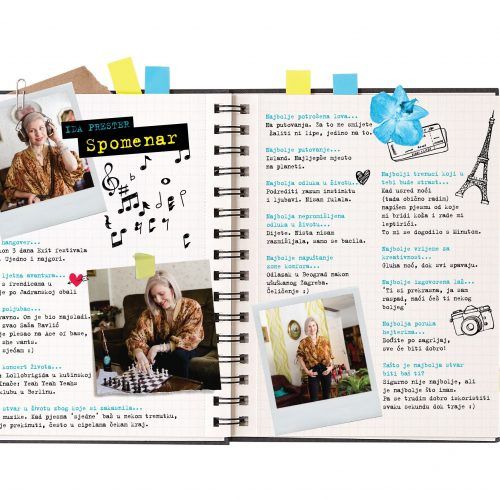 IDA PRESTER
Spomenar
hangover...
on 3 dana Exit festivala
Ujedno i najgori.
ljetna avantura...
s frendicama u
po Jadranskoj obali
poljubac...
ravno. On je bio najslađi.
zvao Saša Ravlić
e plesao na Ace of base,
she wants.
sjećam :)
koncert života...
Lollobrigida u kutinskoj
Inače: Yeah Yeah Yeahs
klubu u Berlinu.
stvar u životu zbog koje si zakasnila...
muzike. Kad pjesma 'sjedne' baš u nekom trenutku,
e prekinuti, često u cipelama čekam kraj.
Najbolje potrošena lova...
Na putovanja. Za to ne smijete
žaliti ni lipe, jedino na to.
Najbolje putovanje...
Island. Najljepše mjesto
na planeti.
Najbolja odluka u životu...
Podrediti razum instinktu
i ljubavi. Nisam fulala.
Najbolja nepromišljena
odluka u životu...
Dijete. Ništa nisam
razmišljala, samo se bacila.
Najbolje napuštanje
zone komfora...
Odlazak iz Beograd nakon
ušuškanog Zagreba.
Čeličenje :)
Najbolji trenuci koji u
tebi bude strast...
Kad usred noći
(tada obično radim)
napišem pjesmu od koje
mi bridi koža i rade mi
leptirići.
To mi se dogodilo s Minutom.
Najbolje vrijeme za
kreativnost...
Gluha noć, dok svi spavaju.
Najbolje izgovorena laž...
"Ti si prekrasna, ja sam
raspad, naći ćeš ti nekog
boljeg
Najbolja poruka
hejterima...
Dođite po zagrljaj,
sve će biti dobro!
Zašto je najbolja stvar
biti baš ti?
Sigurno nije najbolje, ali
je najbolje što imam.
Pa se trudim dobro iskoristiti
svaku sekundu dok traje :)